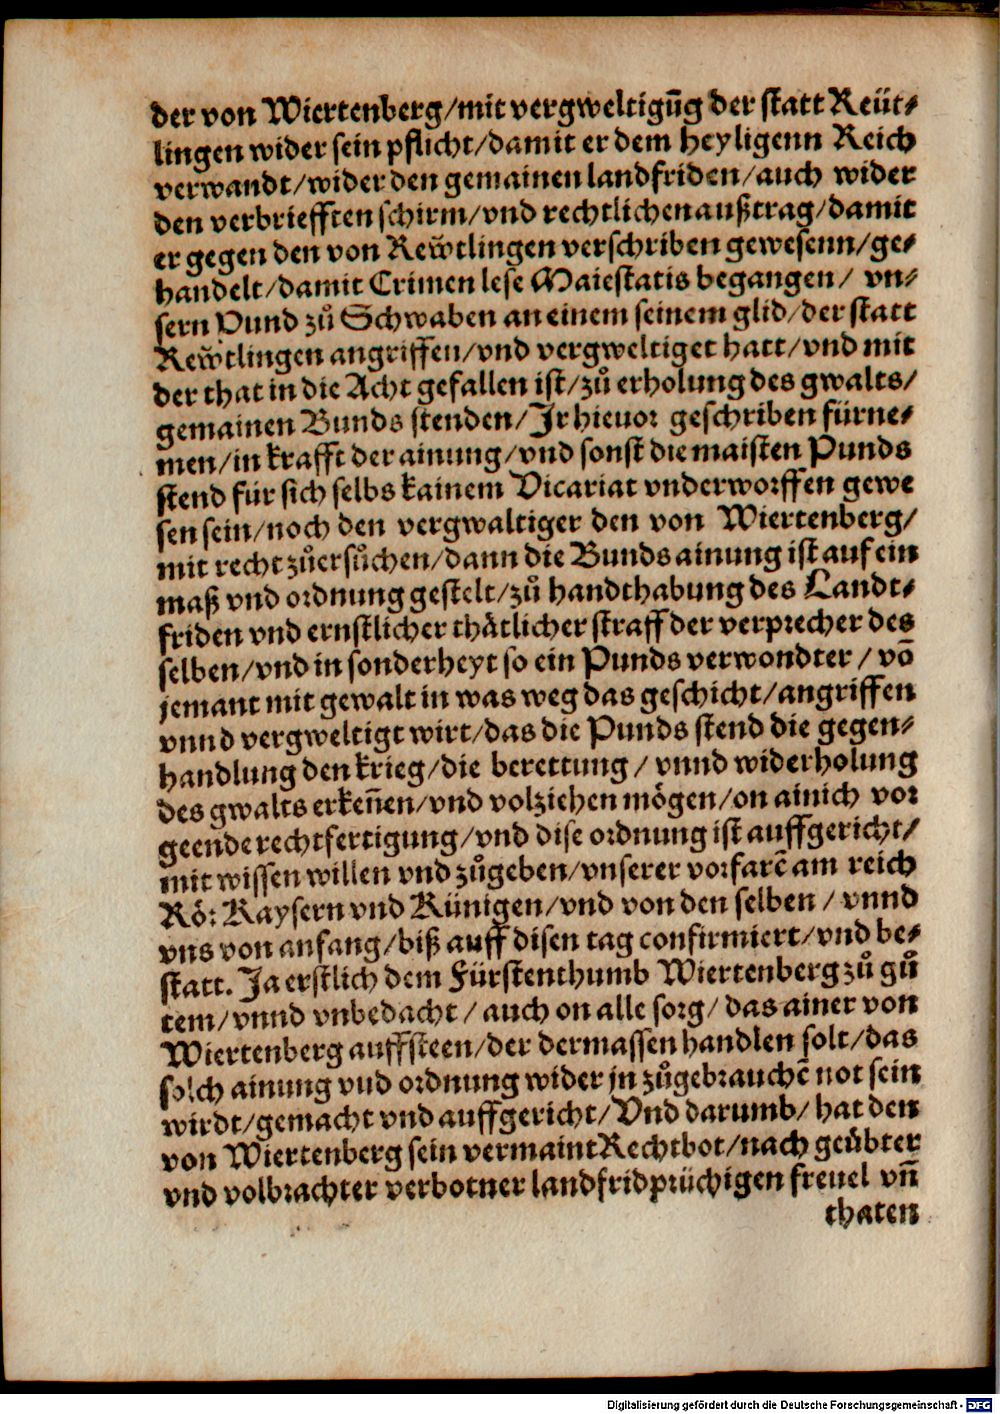 der von Wiertenberg/mit vergweltigūg der statt Reüt-
lingen wider sein pflicht/damit er dem heyligenn Reich
verwandt/wider den gemainen landfriden/auch wider
den verbriefften schirm/vnd rechtlichen außtrag/damit
er gegen den von Rewͤtlingen verschriben gewesenn/ge-
handelt/damit Crimen lese Maiestatis begangen/ vn-
sern Pund zů Schwaben an einem seinem glid/der statt
Rewͤtlingen angriffen/vnd vergweltiget hatt/vnd mit
der that in die Acht gefallen ist/zů erholung des gwalts/
gemainen Bunds stenden/Jr hieuor geschriben fürne-
men/in krafft der ainung/vnd sonst die maisten Punds
stend für sich selbs kainem Vicariat vnderworffen gewe
sen sein/noch den vergwaltiger den von Wiertenberg/
mit recht zůersůchen/dann die Bunds ainung ist auf ein
maß vnd ordnung gestelt/zů handthabung des Landt-
friden vnd ernstlicher thätlicher straff der verprecher des
selben/vnd in sonderheyt so ein Punds verwondter/ vō
jemant mit gewalt in was weg das geschicht/angriffen
vnnd vergweltigt wirt/das die Punds stend die gegen-
handlung den krieg/die berettung/ vnnd widerholung
des gwalts erkeñen/vnd volziehen mögen/on ainich vor
geende rechtfertigung/vnd dise ordnung ist auffgericht/
mit wissen willen vnd zůgeben/vnserer vorfarē am reich
Rö: Kaysern vnd Künigen/vnd von den selben/ vnnd
vns von anfang/biß auff disen tag confirmiert/vnd be-
statt. Ja erstlich dem Fürstenthumb Wiertenberg zů gů
tem/vnnd vnbedacht/ auch on alle sorg/ das ainer von
Wiertenberg auffsteen/der dermassen handlen solt/das
solch ainung vnd ordnung wider jn zůgebrauchē not sein
wirdt/gemacht vnd auffgericht/Vnd darumb/ hat den
von Wiertenberg sein vermaint Rechtbot/nach geübter
vnd volbrachter verbotner landfridprüchigen freuel vñ
thaten
Digitalisierung gefördert durch die Deutsche Forschungsgemeinschaft - DFG